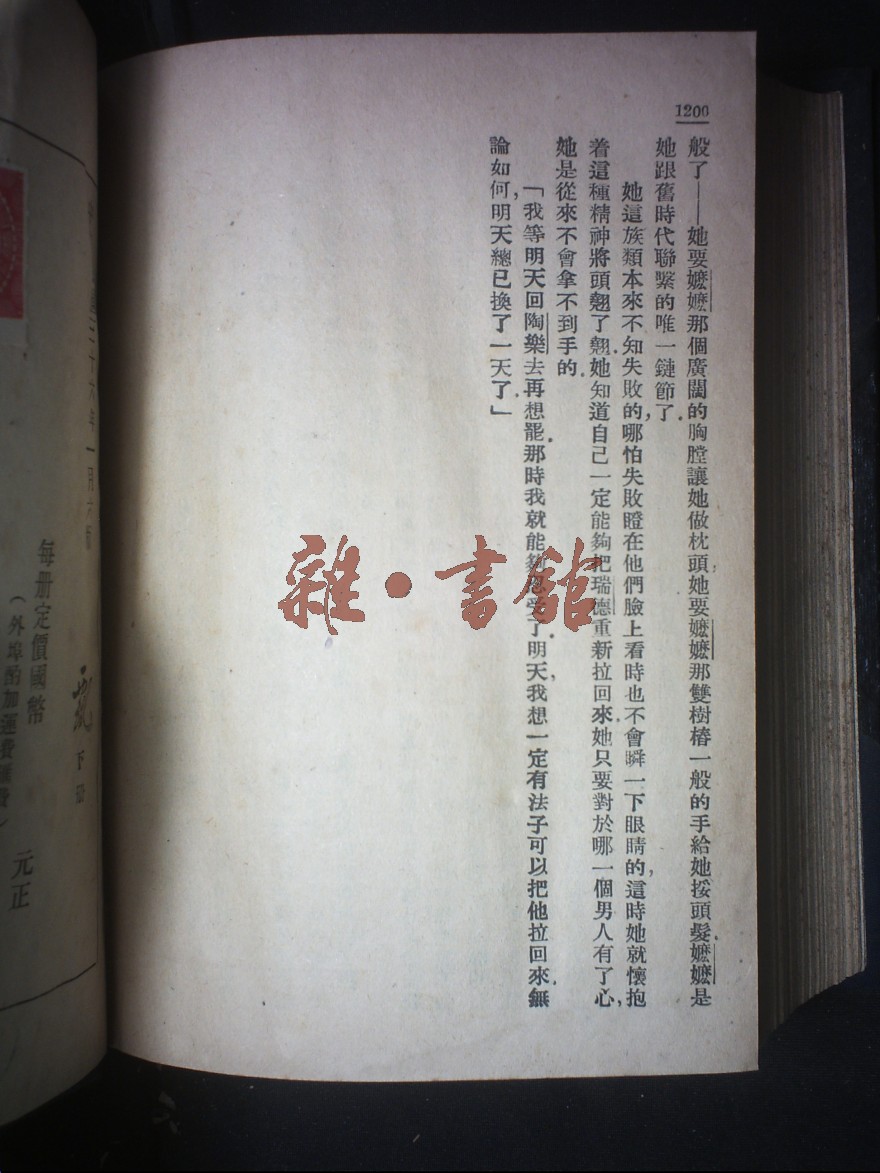 1200
般了——她要嬤嬤那個廣闊的胸膛讓她做枕頭，她要嬤嬤那雙樹樁一般的手給她挼頭髮。嬤嬤是
她跟舊時代聯繫的唯一鏈節了。
她這族類本來不知失敗的，哪怕失敗瞪在他們臉上看時也不會瞬一下眼睛的，這時她就懷抱
着這種精神將頭翹了翹。她知道自己一定能夠把瑞德重新拉回來。她只要對於哪一個男人有了心，
她是從來不會拿不到手的。
「我等明天回陶樂去再想罷。那時我就能夠忍受了。明天，我想一定有法子可以把他拉回來。無
論如何，明天總已換了一天了。」
雜·書館
二十六年一月
每册定價國幣
元正
（外埠酌加運費匯費）
下